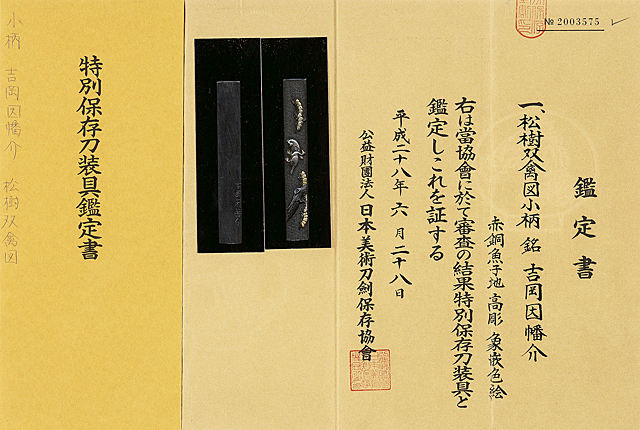 鑑定書
一、松樹双禽図小柄 銘 吉岡因幡介
赤銅魚子地 高彫 象嵌色絵
右は當協會に於て審査の結果特別保存刀装具と
鑑定しこれを証する
平成二十八年 六月 二十八日
公益財團法人 日本美術刀剣保存協會
№ 2003575
特別保存刀装具鑑定書
小柄 吉岡因幡介 松樹双禽図